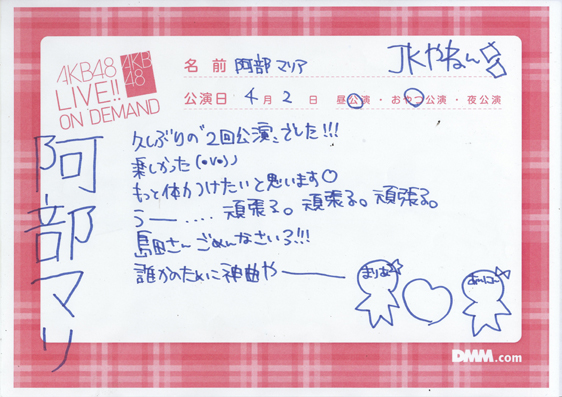 AKB48
LIVE!!
ON DEMAND
AKB
48
名前 阿部マリア
JKやねん
公演日 4月2日 昼公演・おやつ公演・夜公演
久しぶりの"2回公演"でした!!!
楽しかった(・v・)
もっと体力つけたいと思います♡
うー‥‥頑張る。頑張る。頑張る。
島田さんごめんなさいろ!!!
誰かのために神曲やーーー
まりあ
阿部マリ
DMM.com